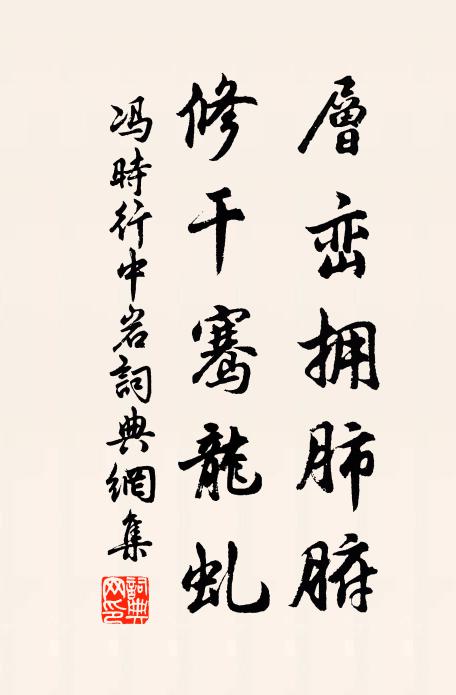 層峦拥肺腑
修干骞龍虬
冯時行中岩詞典網集
詞典网印